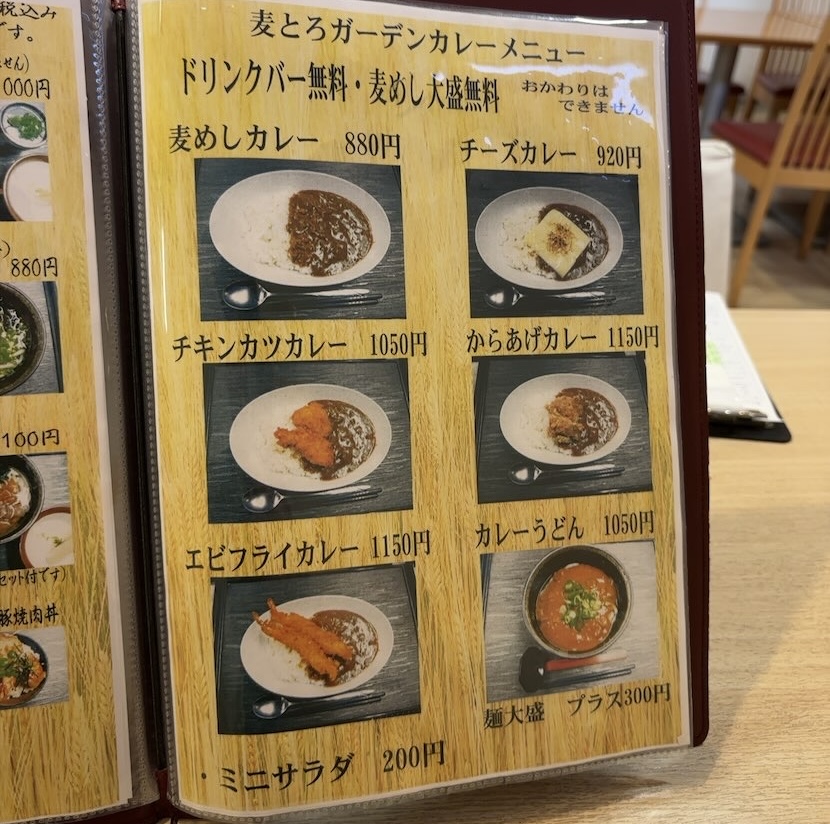 税込み
です。
せん)
000円
880円
100円
セット付です)
豚焼肉丼
麦とろガーデンカレーメニュー
ドリンクバー無料・麦めし大盛無料
おかわりは
できません
麦めしカレー 880円
チーズカレー 920円
チキンカツカレー 1050円
からあげカレー 1150円
エビフライカレー 1150円
カレーうどん 1050円
麺大盛 プラス300円
・ミニサラダ 200円